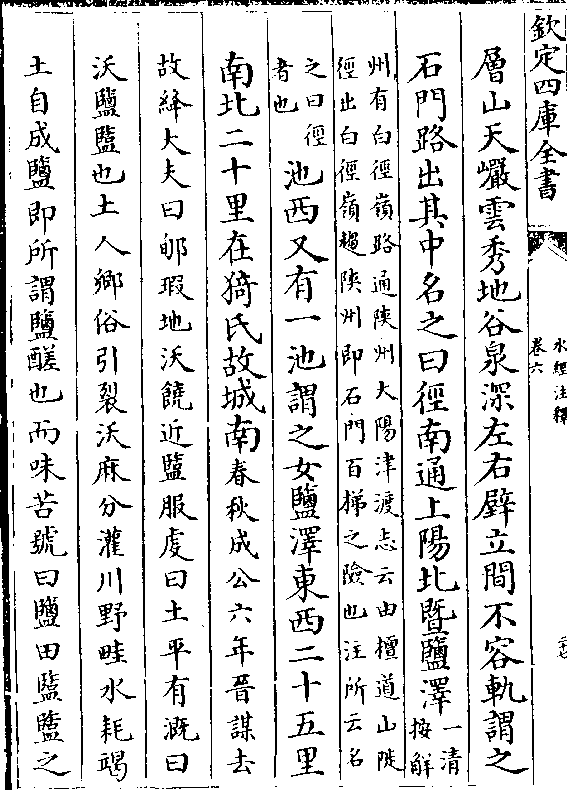 欽定四庫全書
水經注釋
卷六
層山天巗雲秀地谷泉深左右壁立間不容軌謂之
石門路出其中名之曰徑南通上陽北暨鹽澤
一清
按解
州有白徑嶺路通陝州大陽津渡志云由檀道山陡
徑出白徑嶺趨陝州即石門百梯之險也注所云名
之曰徑
者也
池西又有一池謂之女鹽澤東西二十五里
南北二十里在猗氏故城南春秋成公六年晉謀去
故絳大夫曰郇瑕地沃饒近盬服虔曰土平有溉曰
沃鹽盬也土人鄉俗引裂沃麻分灌川野畦水耗竭
土自成鹽即所謂鹽醝也而味苦號曰鹽田鹽盬之